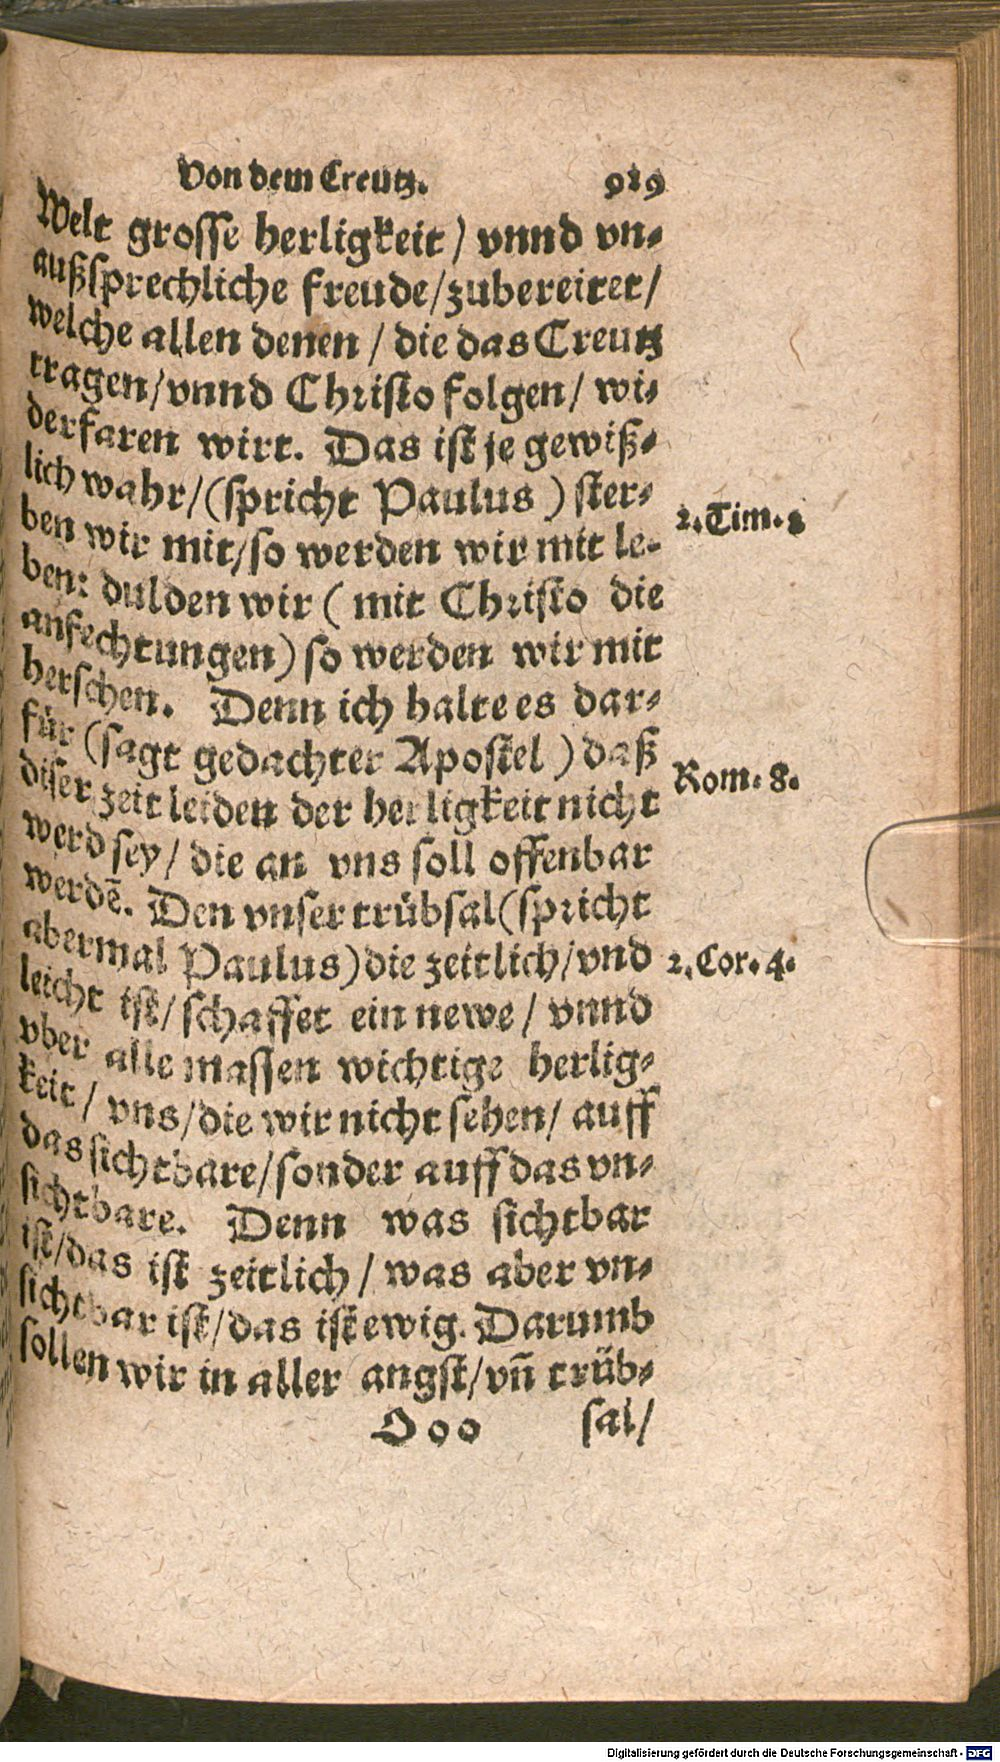 Von dem Creutz. 929
Welt grosse herligkeit / vnnd vn-
außsprechliche freude / zubereitet /
welche allen denen / die das Creutz
tragen / vnnd Christo folgen / wi-
derfaren wirt. Das ist je gewiß-
lich wahr / (spricht Paulus) ster-
ben wir mit / so werden wir mit le-
ben: dulden wir (mit Christo die
anfechtungen) so werden wir mit
herschen. Denn ich halte es dar-
für (sagt gedachter Apostel) daß
diser zeit leiden der herligkeit nicht
werd sey / die an vns soll offenbar
werdē. Den vnser trübsal (spricht
abermal Paulus) die zeitlich / vnd
leicht ist / schaffet ein newe / vnnd
vber alle massen wichtige herlig-
keit / vns / die wir nicht sehen / auff
das sichtbare / sonder auff das vn-
sichtbare. Denn was sichtbar
ist / das ist zeitlich / was aber vn-
sichtbar ist / das ist ewig. Darumb
sollen wir in aller angst / vñ trüb-
Ooo sal /
2. Tim. 2
Rom. 8.
2. Cor. 4.
Digitalisierung gefördert durch die Deutsche Forschungsgemeinschaft - DFG